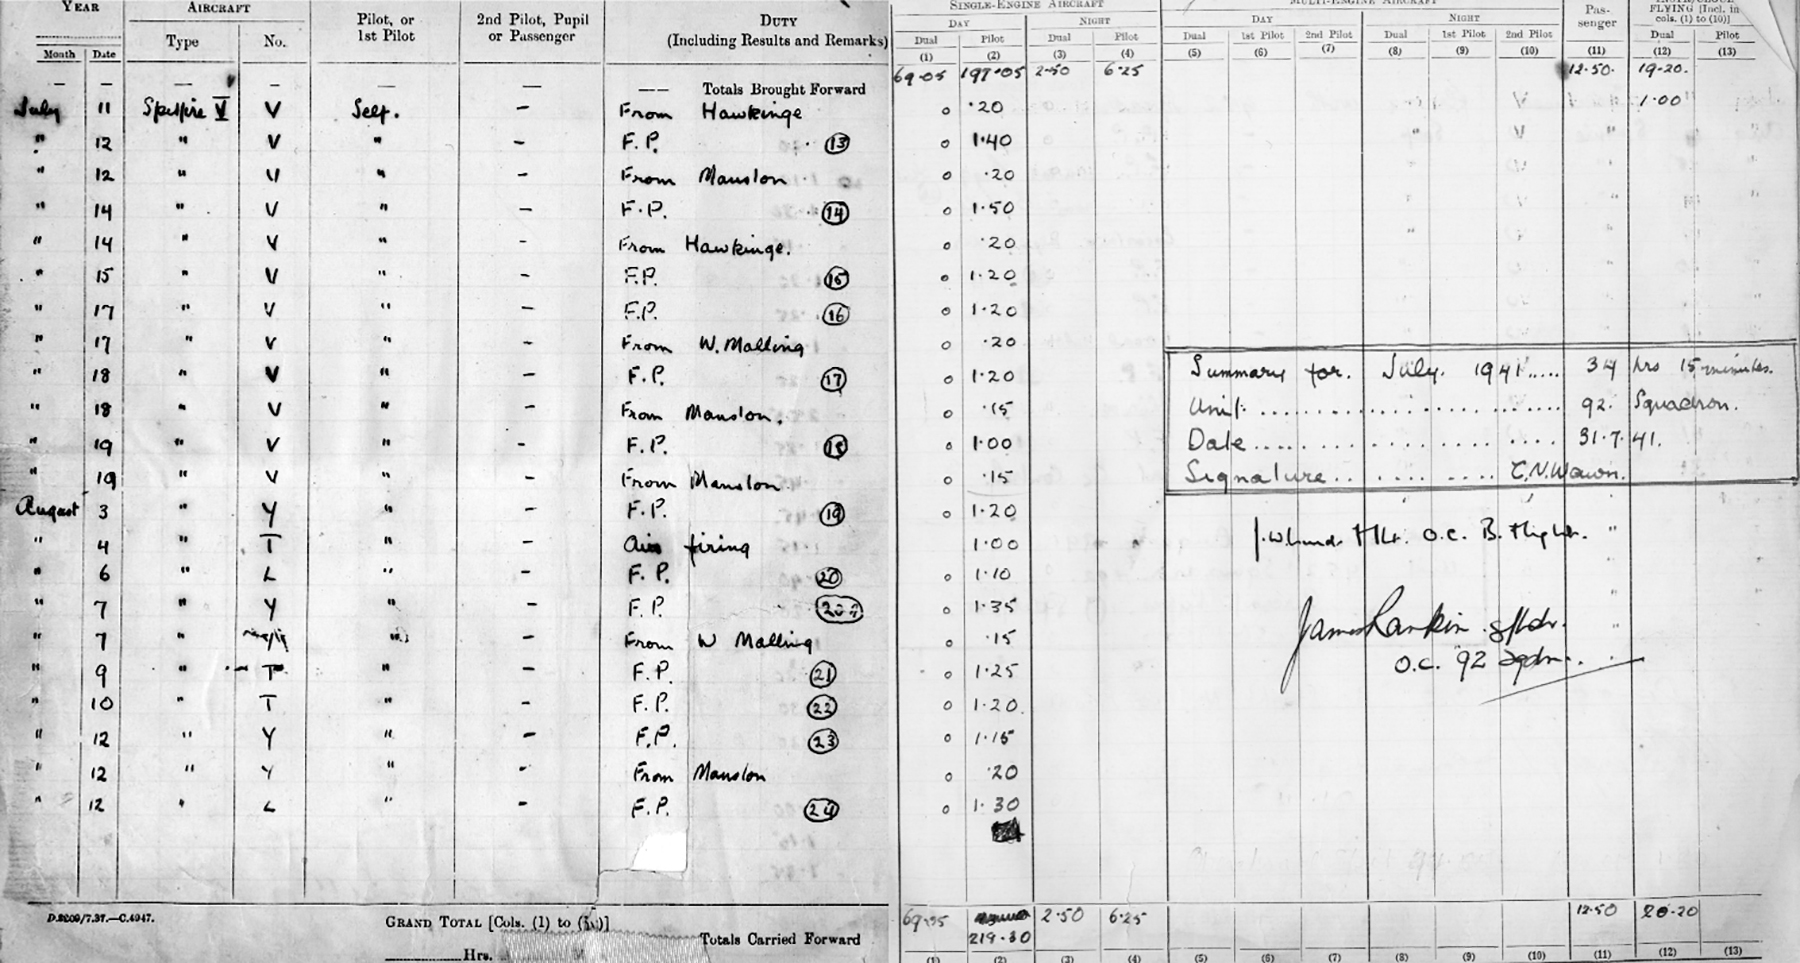 YEAR AIRCRAFT Pilot, or 1st Pilot 2nd Pilot, Pupil or Passenger DUTY (Including Results and Remarks)
Month Date Type No.
SINGLE-ENGINE AIRCRAFT MULTI-ENGINE AIRCRAFT Pas-senger FLYING [Incl. in cols. (1) to (10)]
DAY NIGHT DAY NIGHT
Dual Pilot Dual Pilot Dual 1st Pilot 2nd Pilot Dual 1st Pilot 2nd Pilot Dual Pilot
(1) (2) (3) (4) (5) (6) (7) (8) (9) (10) (11) (12) (13)
— — — — — — —— Totals Brought Forward 69.05 197.05 2.50 6.25 12.50. 19-20.
July 11 Spitfire V V Self. - From Hawkinge 0 .20 1.00
" 12 " V " - F.P. 13 0 1.40
" 12 " V " - From Manston 0 .20
" 14 " V " - F.P. 14 0 1.50
" 14 " V " - From Hawkinge. 0 .20
" 15 " V " - F.P. 15 0 1.20
" 17 " V " - F.P. 16 0 1.20
" 17 " V " - From W. Malling 0 .20
" 18 " V " - F.P. 17 0 1.20
" 18 " V " - From Manston. 0 .15
" 19 " V " - F.P. 18 0 1.00
" 19 " V " - From Manston 0 .15
August 3 " Y " - F.P. 19 0 1.20
" 4 " T " - Air firing 1.00
" 6 " L " - F.P. 20 0 1.10
" 7 " Y " - F.P. 0 1.35
" 7 " " - From W Malling 0 .15
" 9 " T " - F.P. 21 0 1.25
" 10 " T " - F.P. 22 0 1.20
" 12 " Y " - F.P. 23 0 1.15
" 12 " Y " - From Manston 0 .20
" 12 " L " - F.P. 24 0 1.30
Summary for. July. 1941..... 34 hrs 15 minutes.
Unit ........ 92. Squadron.
Date ........ 31.7.41.
Signature ........ C.N.Wawn.
O.C. B. Flight.
James Rankin S/Ldr.
O.C. 92 Sqdn.
D.8209/7.37.—C.4947.
GRAND TOTAL [Cols. (1) to (10)]
Hrs.
Totals Carried Forward 69.05 219.30 2.50 6.25 12.50 20-20
(1) (2) (3) (4) (5) (6) (7) (8) (9) (10) (11) (12) (13)